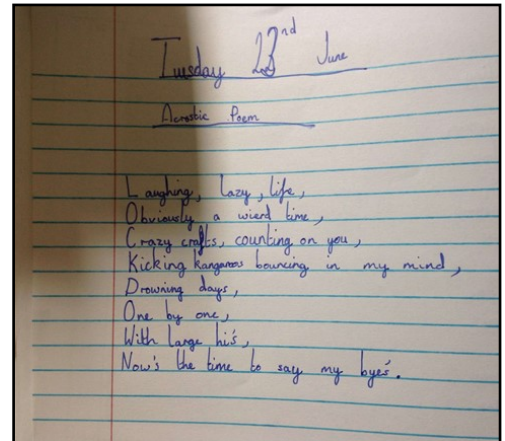 Tuesday 23rd June
Acrostic Poem
Laughing, lazy, life,
Obviously a wierd time,
Crazy crafts, counting on you,
Kicking kangaroos bouncing in my mind,
Drowning days,
One by one,
With large hi's,
Now's the time to say my bye's.